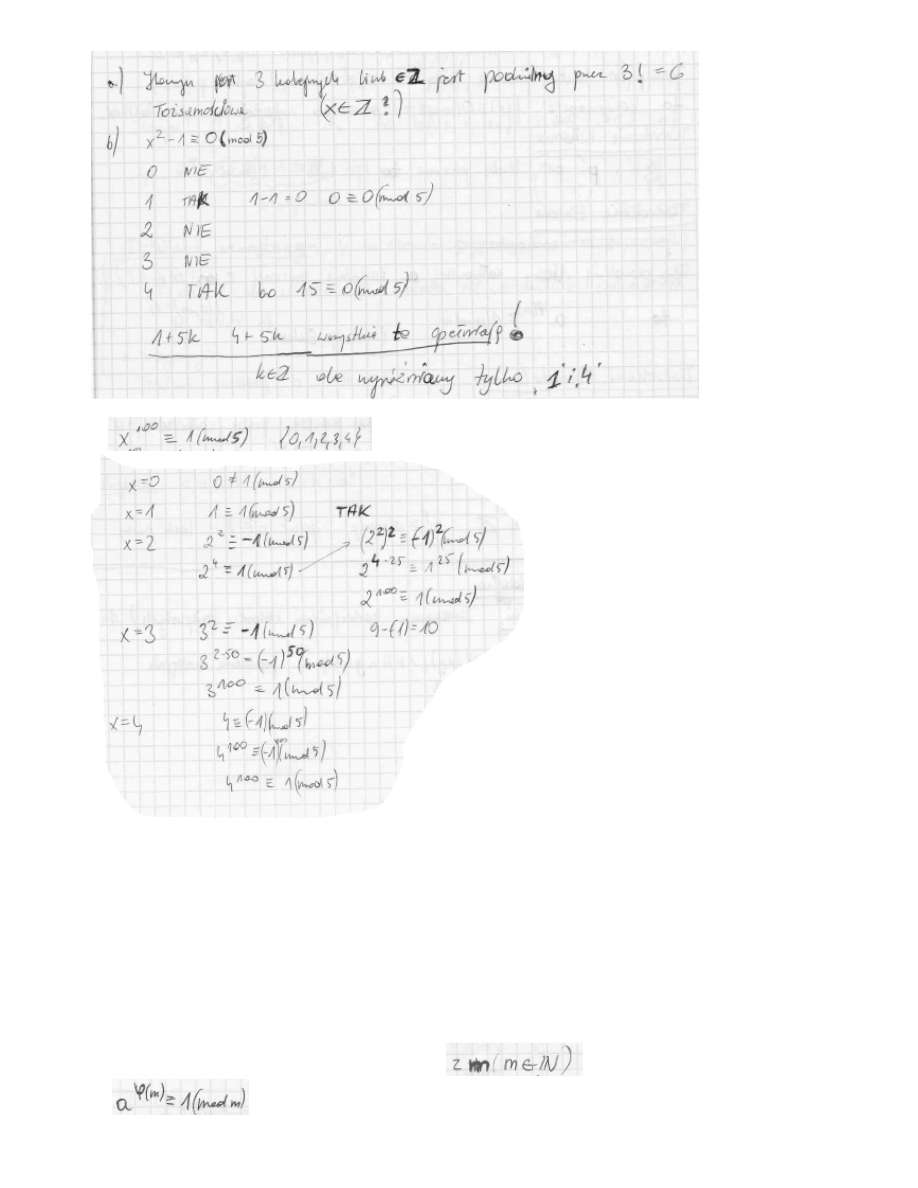 a) Iloczyn 3 kolejnych liczb ∈ℤ jest podzielny przez 3! = 6
Tożsamościowe (x∈ℤ ?)
b) x² - 1 ≡ 0 (mod 5)
0 NIE
1 TAK 1-1=0 0 ≡ 0 (mod 5)
2 NIE
3 NIE
4 TAK bo 15 ≡ 0 (mod 5)
1+5k 4+5k wszystkie to spełniają!
k∈ℤ ale wypisujemy tylko "1 i 4"
x¹⁰⁰ ≡ 1 (mod 5) {0,1,2,3,4}
x=0 0 ≠ 1 (mod 5)
x=1 1 ≡ 1 (mod 5) TAK
x=2 2² ≡ -1 (mod 5) (2²)² ≡ (-1)² (mod 5)
2⁴ ≡ 1 (mod 5) 2⁴·²⁵ ≡ 1²⁵ (mod 5)
2¹⁰⁰ ≡ 1 (mod 5)
x=3 3² ≡ -1 (mod 5) 9-(-1)=10
3²·⁵⁰ = (-1)⁵⁰ (mod 5)
3¹⁰⁰ ≡ 1 (mod 5)
x=4 4 ≡ (-1) (mod 5)
4¹⁰⁰ ≡ (-1)¹⁰⁰ (mod 5)
4¹⁰⁰ ≡ 1 (mod 5)
z m (m∈ℕ)
a^φ(m) ≡ 1 (mod m)